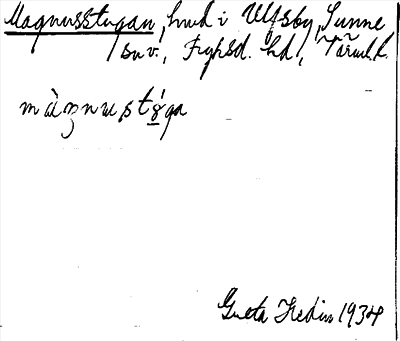 Magnusstugan, hmd i Ulfsby, Sunne
sn v., Fryksd. hd, Värml. l.
màgnustý̱ga
Greta Hedin 1934